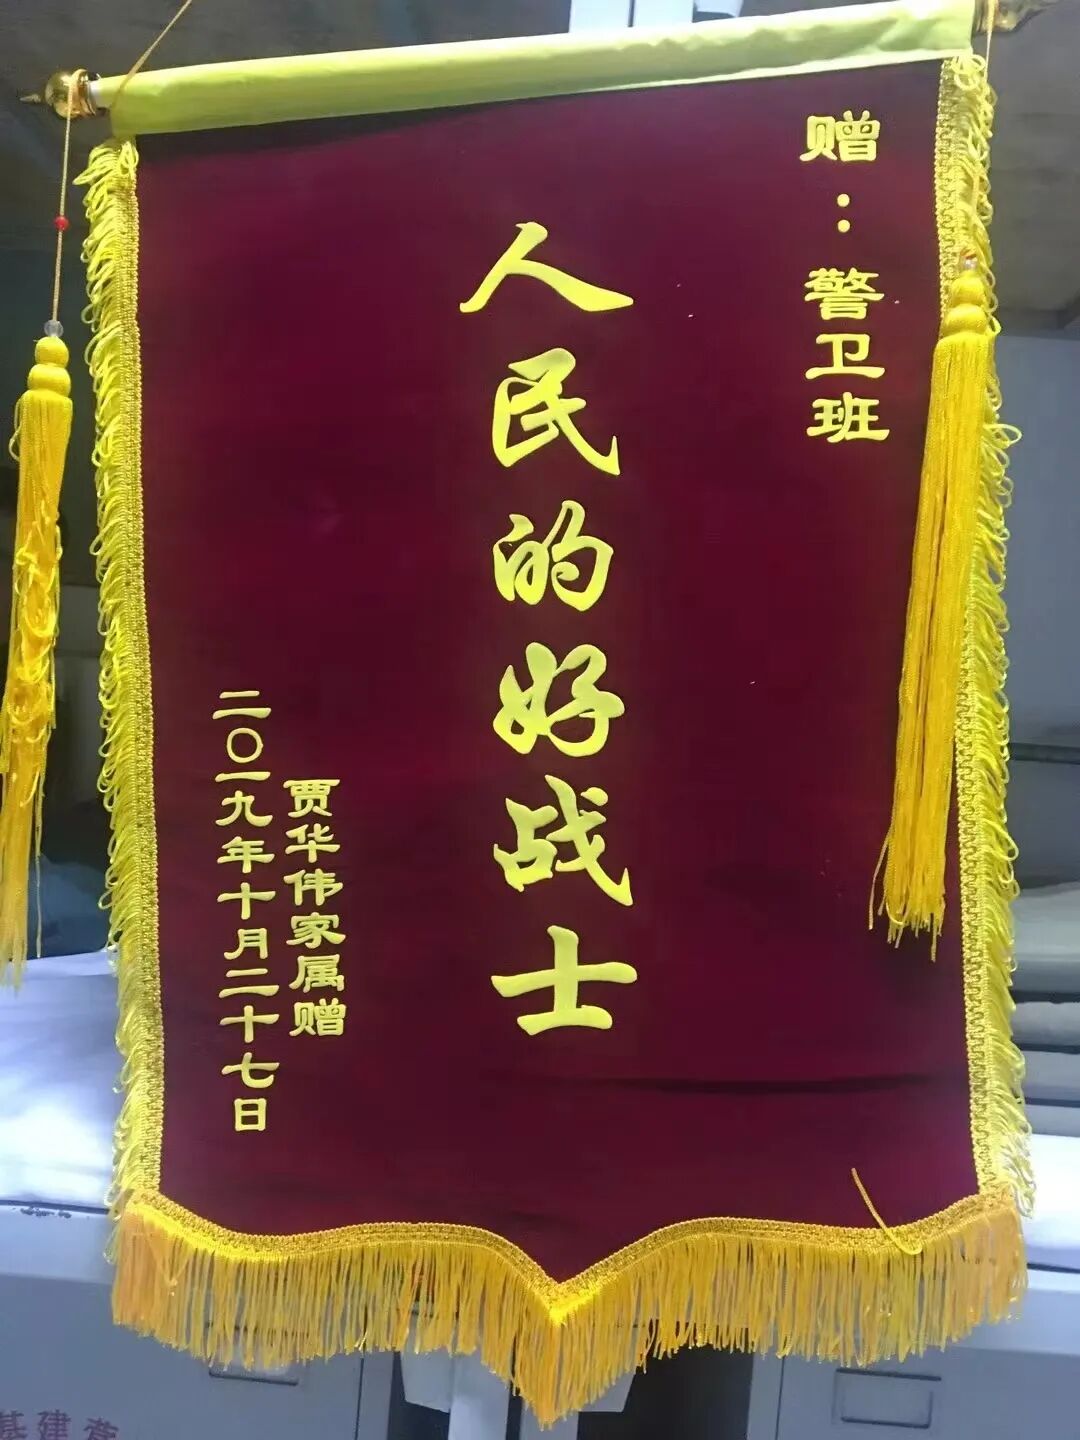 赠：警卫班
人民的好战士
贾华伟家属赠
二〇一九年十月二十七日
基建营